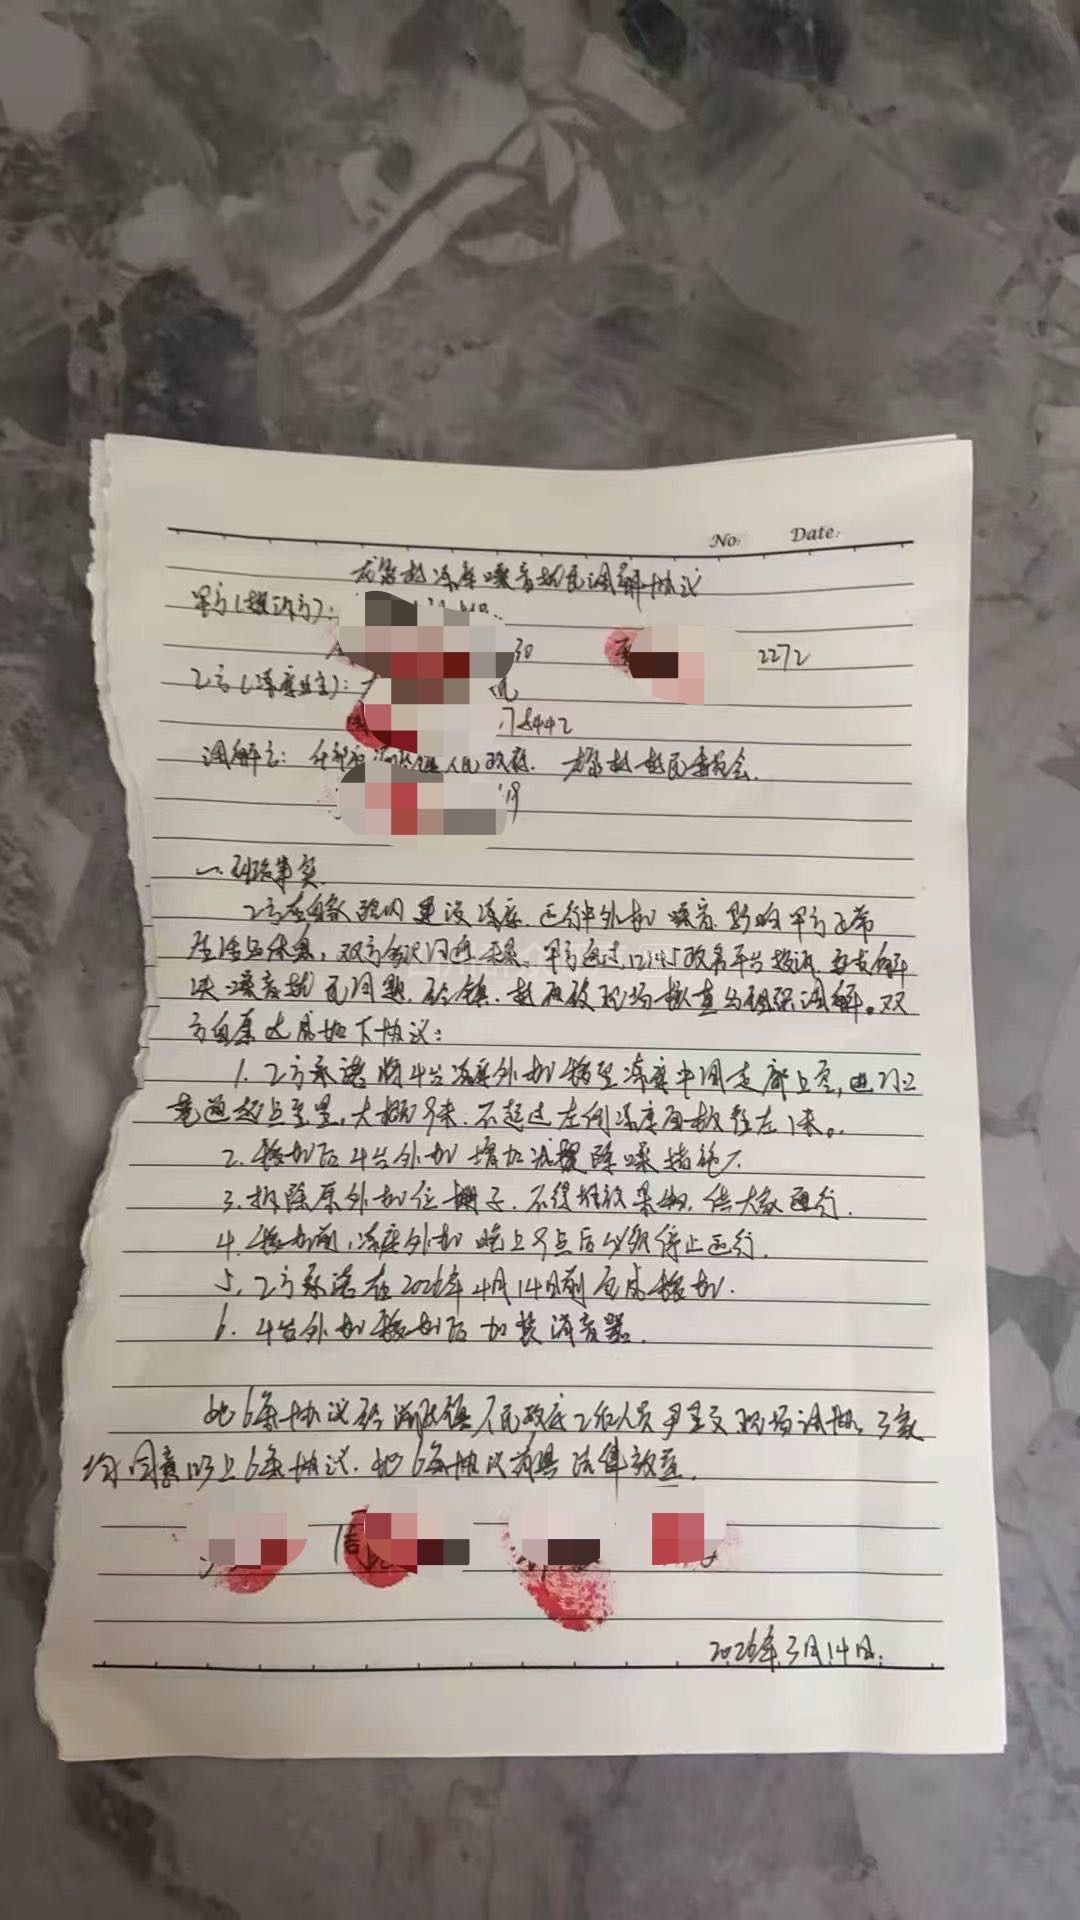 No: Date:
冻库噪音扰民调解协议
甲方(投诉方):
30 2272
乙方(冻库业主):
78442
调解方: 人民政府. 村村民委员会.
19
一. 纠纷事实
乙方在自家院内建设冻库. 运行中外机噪音影响甲方正常
生活与休息, 双方多次沟通未果. 甲方通过12345政务平台投诉. 要求解
决噪音扰民问题. 经镇. 村两级现场核查与组织调解. 双
方自愿达成如下协议:
1. 乙方承诺将4台冻库外机移至冻库中间走廊上空, 进门
通起点至里, 大概9米. 不超过左侧冻库面板往左1米.
2. 移机后4台外机增加减震除噪措施.
3. 拆除原外机位棚子. 不得堆放杂物. 供大家通行.
4. 移机前, 冻库外机晚上9点后必须停止运行.
5. 乙方承诺在2026年4月14日前完成移机.
6. 4台外机移机后加装消音器.
此6条协议经 镇人民政府工作人员 现场调解. 3家
均同意以上6条协议. 此6条协议 具法律效益.
2026年3月14日.